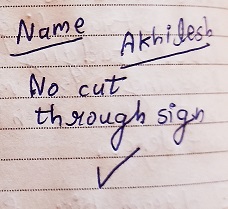 Name Akhilesh
No cut
through sign